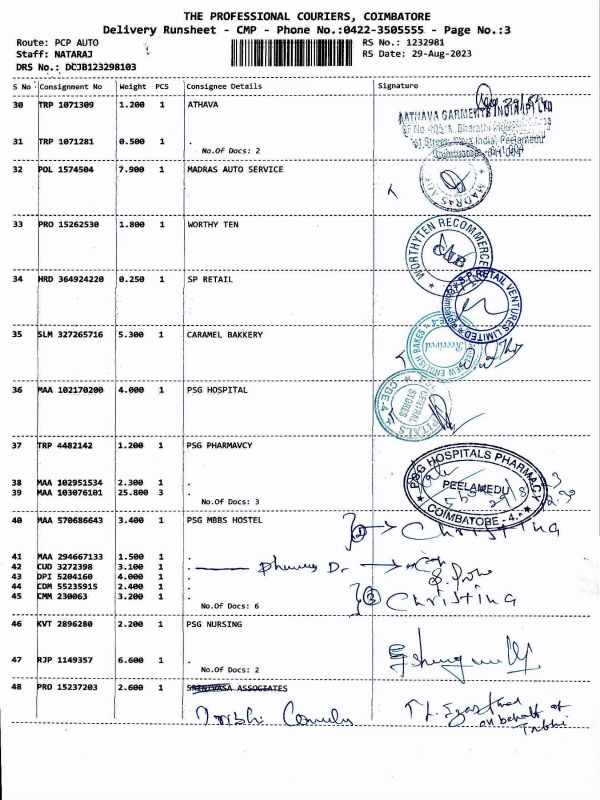 THE PROFESSIONAL COURIERS, COIMBATORE
Delivery Runsheet - CMP - Phone No.:0422-3505555 - Page No.:3
Route: PCP AUTO
RS No.: 1232981
Staff: NATARAJ
RS Date: 29-Aug-2023
DRS No.: DCJB123298103
S No Consignment No Weight PCS Consignee Details Signature
30 TRP 1071309 1.200 1 ATHAVA
AATHAVA GARMENTS INDIA (P) LTD
31 TRP 1071281 0.500 1 .
No.Of Docs: 2
32 POL 1574504 7.900 1 MADRAS AUTO SERVICE
MADRAS AU
33 PRO 15262530 1.800 1 WORTHY TEN
WORTHYTEN RECOMMERCE
34 HRD 364924220 0.250 1 SP RETAIL
SP RETAIL VENTURES LIMITED
35 SLM 327265716 5.300 1 CARAMEL BAKKERY
NEW ENGLISH BAKES
Received
36 MAA 102170200 4.000 1 PSG HOSPITAL
CENTRAL STORES
CBE-4
37 TRP 4482142 1.200 1 PSG PHARMAVCY
PSG HOSPITALS PHARMACY
PEELAMEDU
COIMBATORE - 4.
38 MAA 102951534 2.300 1 .
39 MAA 103076101 25.800 3 .
No.Of Docs: 3
40 MAA 570686643 3.400 1 PSG MBBS HOSTEL
Christina
41 MAA 294667133 1.500 1 .
42 CUD 3272398 3.100 1 .
43 DPI 5204160 4.000 1 .
44 CDM 55235915 2.400 1 .
45 CMM 230063 3.200 1 .
Christina
No.Of Docs: 6
46 KVT 2896280 2.200 1 PSG NURSING
47 RJP 1149357 6.600 1 .
No.Of Docs: 2
48 PRO 15237203 2.600 1 SRINIVASA ASSOCIATES
on behalf of